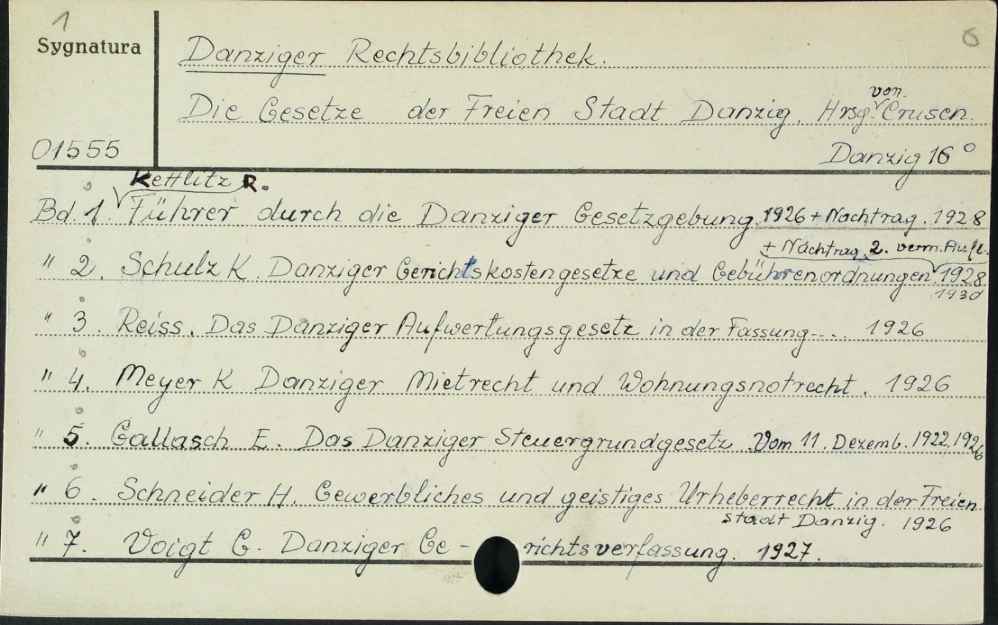 1
6
Sygnatura
Danziger Rechtsbibliothek.
Die Gesetze der Freien Stadt Danzig. Hrsg. von Crusen.
01555
Danzig 16°
Kettlitz R.
Bd. 1. Führer durch die Danziger Gesetzgebung. 1926 + Nachtrag. 1928
+ Nachtrag 2. verm. Aufl.
" 2. Schulz K. Danziger Gerichtskostengesetze und Gebührenordnungen. 1928
1930
" 3. Reiss. Das Danziger Aufwertungsgesetz in der Fassung... 1926
" 4. Meyer K Danziger Mietrecht und Wohnungsnotrecht. 1926
" 5. Gallasch E. Das Danziger Steuergrundgesetz. Vom 11. Dezemb. 1922, 1926
" 6. Schneider H. Gewerbliches und geistiges Urheberrecht in der Freien
Stadt Danzig. 1926
" 7. Voigt G. Danziger Ge - richtsverfassung. 1927.